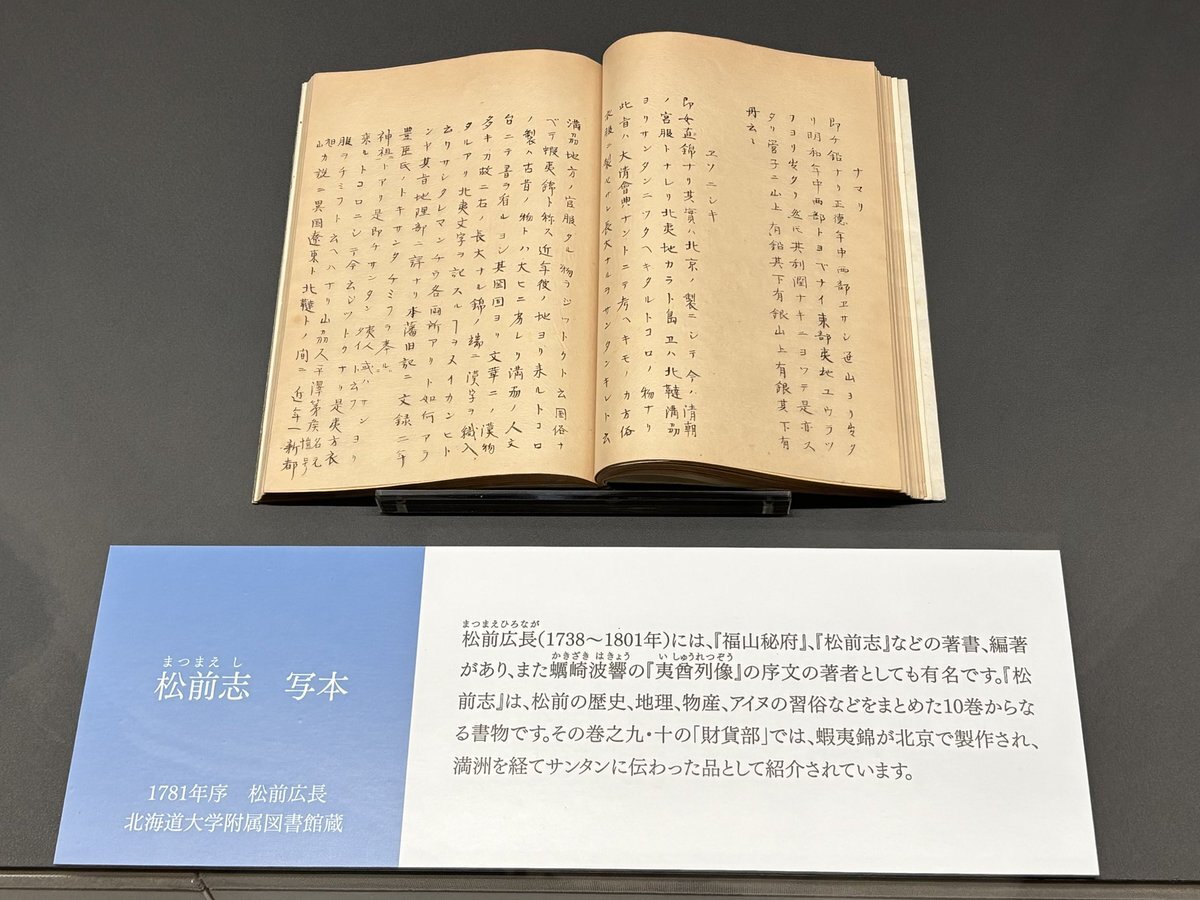 ナマリ
即チ鉛ナリ正徳年中西部ヱサシ近山ヨリ出タ
リ明和年中西部トヨ ナイ東部夷地ユウラツ
フヨリ出タリ然レ共利潤ナキニヨツテ是亦ス
タリ管子ニ山上有鉛其下有銀山上有銀其下有
丹云々
ヱソニシキ
即女直錦ナリ其實ハ北京ノ製ニシテ今ノ清朝
ノ宮服トナレリ北夷地カラト島ヱハ北韃満刕
ヨリサンタンニツタヘキタルトコロノ物ナリ
此旨ハ大清會典ナントニテ考ヘキモノカ方俗
長大ナルヲサンタンキレト云
満刕地方ノ官服タル物ヲジツトクト云国俗ナ
ベテ蝦夷錦ト称ス近年彼ノ地ヨリ来ルトコロ
ノ製ハ古昔ノ物トハ大ヒニ劣レリ満刕ノ人文
其国ヨリ文華ニノ漢物
多キカ故ニ右ノ長大ナル錦ノ端ニ漢字ヲ織入
タルアリ北夷文字ヲ記スルヿヲスイカンヒト
云リサンタレマンチウ各両所アリト如何アラ
ンヤ其旨地理部ニ詳ナリ本藩旧記ニ文録二年
豊臣氏ノトキサンタチミフヲ奉ル
神祖トアリ是即チサンタン夷人或ハサンヨリ
来ルトコロニシテ今云ジツトクナリ是夷方衣
服ヲチミフト云ヘハナリ山刕人平澤
カ説ニ異国遼東ト北韃トノ間ニ近年一新都
まつまえ し
松前志　写本
1781年序　松前広長
北海道大学附属図書館蔵
まつまえひろなが
松前広長(1738〜1801年)には、『福山秘府』、『松前志』などの著書、編著
かきざき はきょう い しゅうれつぞう
があり、また蠣崎波響の『夷酋列像』の序文の著者としても有名です。『松
前志』は、松前の歴史、地理、物産、アイヌの習俗などをまとめた10巻からな
る書物です。その巻之九・十の「財貨部」では、蝦夷錦が北京で製作され、
満洲を経てサンタンに伝わった品として紹介されています。